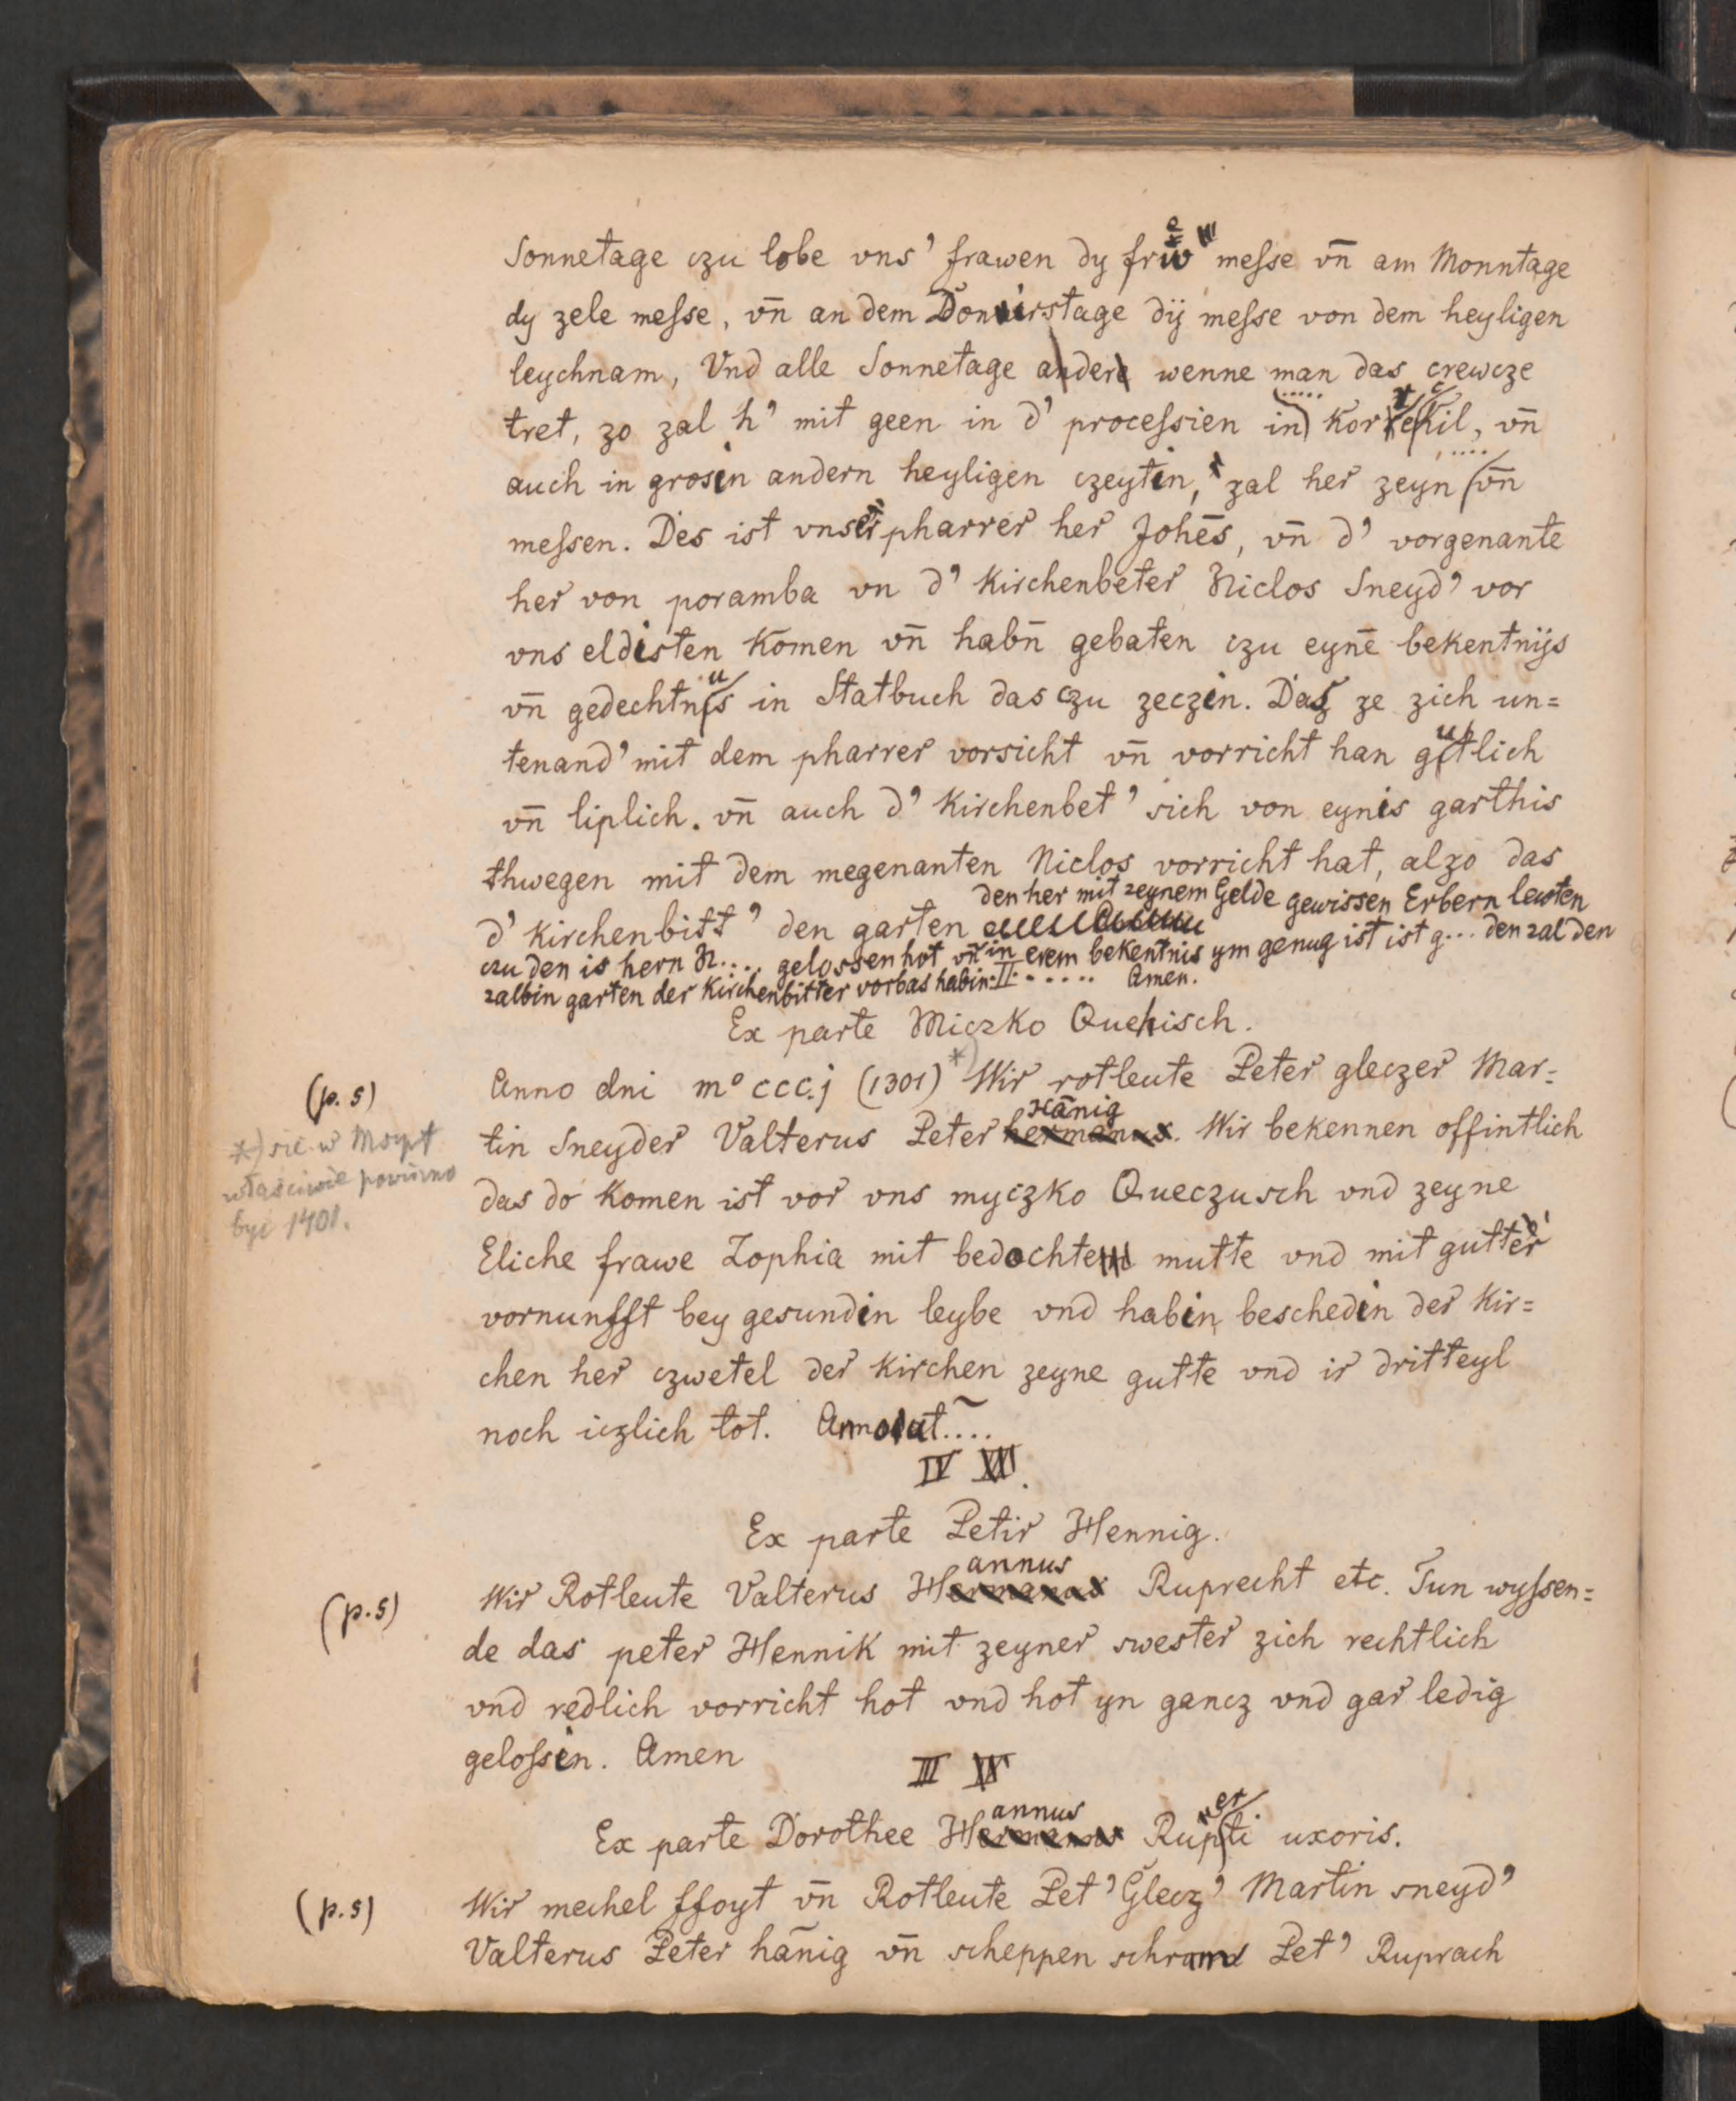 Sonnetage czu lobe vns' frawen dy friw messe vn̄ am Monntage
dy zele messe, vn̄ an dem Donnirstage dÿ messe von dem heyligen
leychnam, Vnd alle Sonnetage ander wenne man das crewcze
tret, zo zal h' mit geen in d' processien in kor vn̄
auch in grosin andern heyligen czeytin, zal her zeyn vn̄
messen. Des ist vnser pharrer her Johēs, vn̄ d' vorgenante
her von poramba vn d' kirchenbeter Niclos Sneyd' vor
vns eldisten komen vn̄ habn̄ gebaten czu eynē bekentnÿs
vn̄ gedechtnus in Statbuch das czu zeczin. Das ze zich un=
tenand' mit dem pharrer vorsicht vn̄ vorricht han gutlich
vn̄ liplich. vn̄ auch d' kirchenbet' sich von eynis garthis
thwegen mit dem megenanten Niclos vorricht hat, alzo das
den her mit zeynem Gelde gewissen Erbern lewten
d' kirchenbitt' den garten
czu den is hern N.... gelossen hot vn̄ in erem bekentnis ym genug ist ist g... den zal den
zalbin garten der Kirchenbitter vorbas habin. II ..... Amen.
Ex parte Miczko Quehisch.
(p. 5) Anno dni m° ccc.j (1301) *) Wir rotleute Peter gleczer Mar=
Hānig
tin Sneyder Valterus Peter hermanus. Wir bekennen offintlich
*) sic w Mscpt
właściwie powinno
być 1401.
das do komen ist vor vns myczko Queczusch vnd zeyne
Eliche frawe Zophia mit bedochtem mutte vnd mit gutter
vornunfft bey gesundin leybe vnd habin beschedin der Kir=
chen her czwetel der kirchen zeyne gutte vnd ir dritteyl
noch iczlich tot. ....
IV
Ex parte Petir Hennig.
annus
(p. 5) Wir Rotleute Valterus Hermanus Ruprecht etc. Tun wyssen=
de das peter Hennik mit zeyner swester zich rechtlich
vnd redlich vorricht hot vnd hot yn gancz vnd gar ledig
gelossin. Amen
III
annus er
Ex parte Dorothee Hermanus Rupti uxoris.
(p. 5) Wir mechel ffoyt vn̄ Rotleute Pet' Glecz' Martin sneyd'
Valterus Peter hānig vn̄ scheppen schram Pet' Ruprach